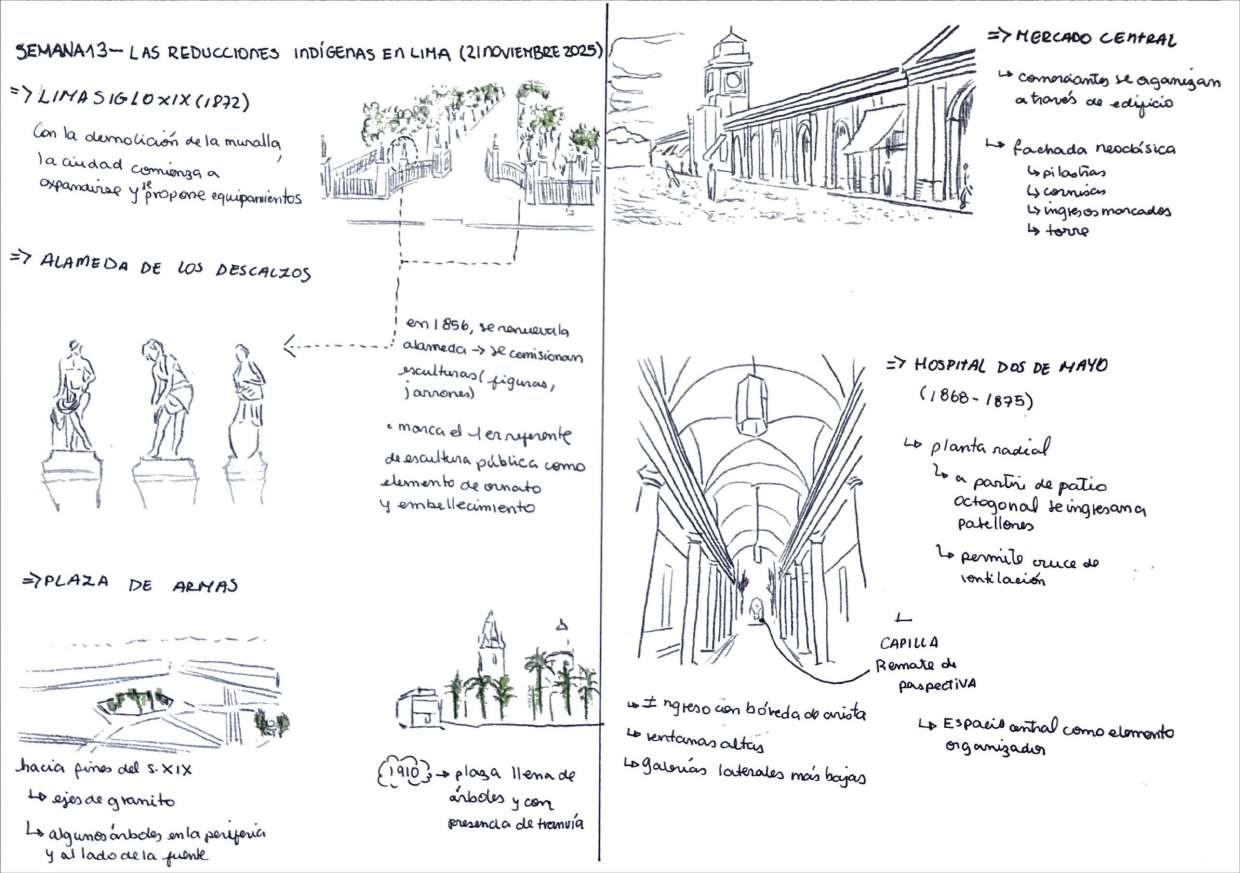 SEMANA 13 – LAS REDUCCIONES INDÍGENAS EN LIMA (21 NOVIEMBRE 2025)
=> LIMA SIGLO XIX (1872)
Con la demolición de la muralla,
la ciudad comienza a
expandirse y se propone equipamientos
=> ALAMEDA DE LOS DESCALZOS
en 1856, se renueva la
alameda → se comisionan
esculturas (figuras,
jarrones)
• marca el 1er referente
de escultura pública como
elemento de ornato
y embellecimiento
=> PLAZA DE ARMAS
hacia fines del S. XIX
↳ ejes de granito
↳ algunos árboles en la periferia
y al lado de la fuente
1910 → plaza llena de
árboles y con
presencia de tranvía
=> MERCADO CENTRAL
↳ comerciantes se organizan
a través de edificio
↳ fachada neoclásica
↳ pilastras
↳ cornisas
↳ ingresos marcados
↳ torre
=> HOSPITAL DOS DE MAYO
(1868 - 1875)
↳ planta radial
↳ a partir de patio
octogonal se ingresan a
patellones
↳ permite cruce de
ventilación
CAPILLA
Remate de
perspectiva
↳ Ingreso con bóveda de arista
↳ ventanas altas
↳ galerías laterales más bajas
↳ Espacio central como elemento
organizador